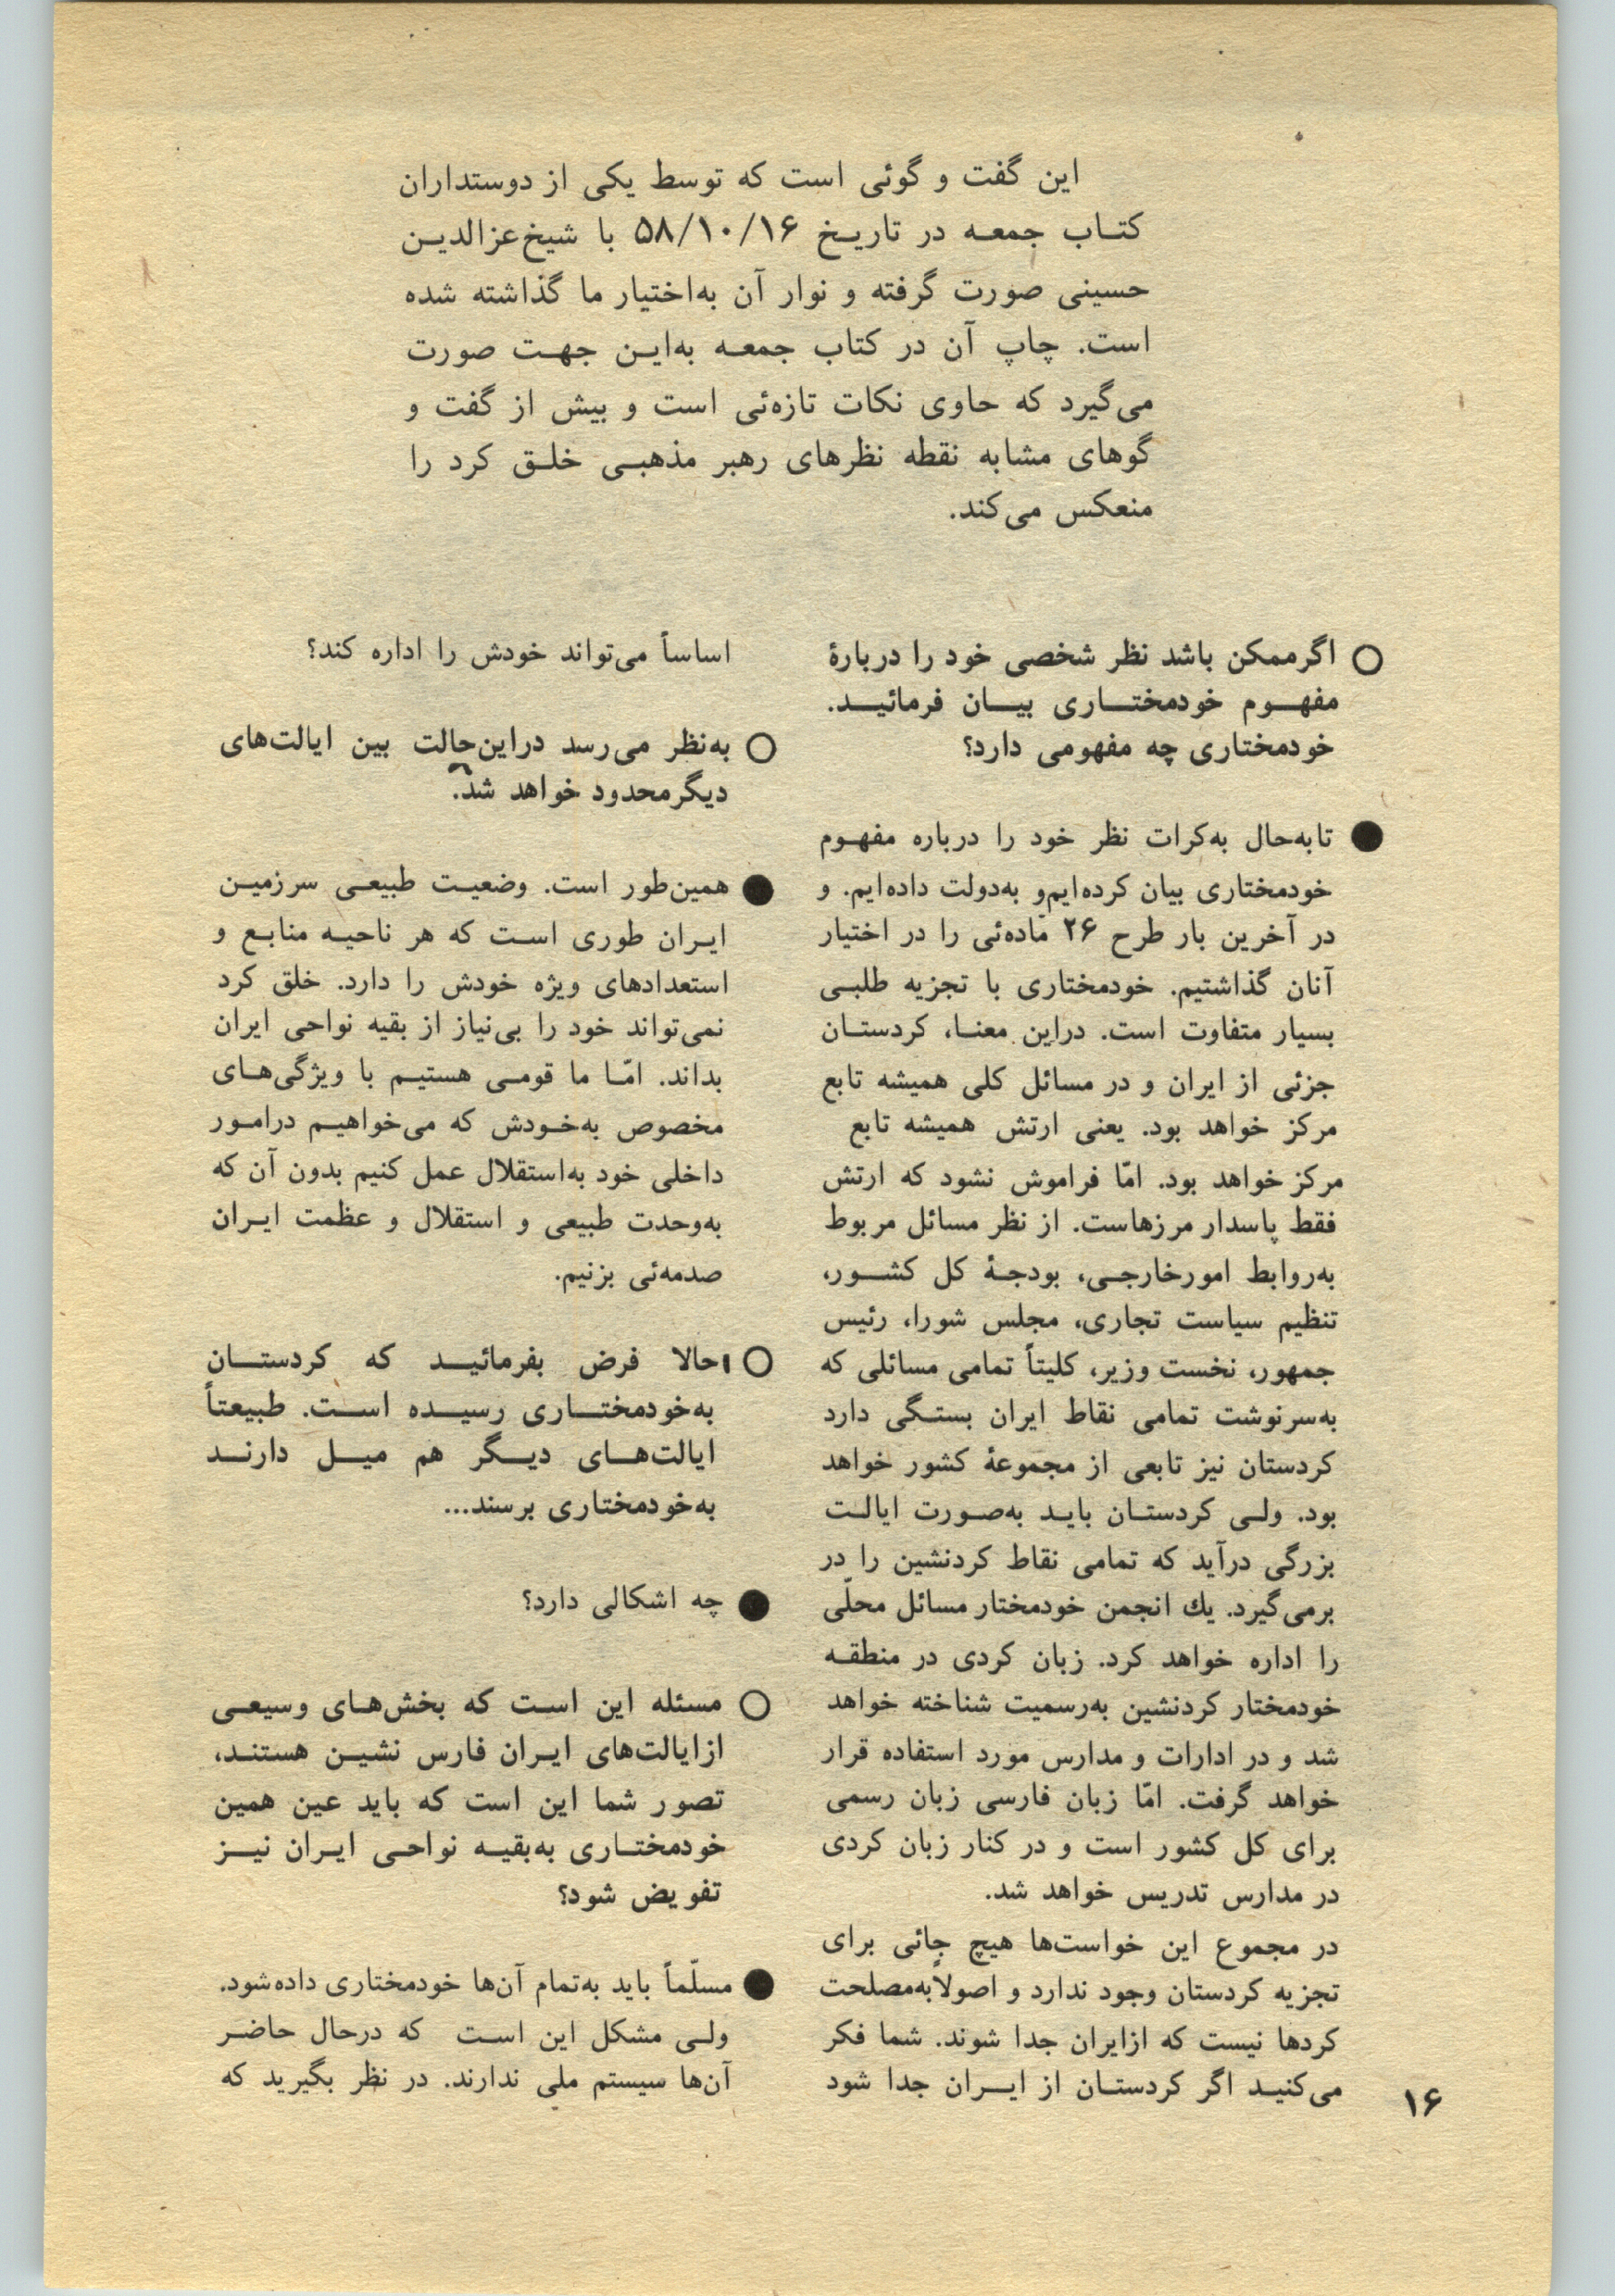 این گفت و گوئی است که توسط یکی از دوستداران
کتاب جمعه در تاریخ ۵۸/۱۰/۱۶ با شیخ‌عزالدین
حسینی صورت گرفته و نوار آن به‌اختیار ما گذاشته شده
است. چاپ آن در کتاب جمعه به‌این جهت صورت
می‌گیرد که حاوی نکات تازه‌ئی است و بیش از گفت و
گوهای مشابه نقطه نظرهای رهبر مذهبی خلق کرد را
منعکس می‌کند.
○ اگرممکن باشد نظر شخصی خود را دربارهٔ
مفهوم خودمختاری بیان فرمائید.
خودمختاری چه مفهومی دارد؟
● تابه‌حال به‌کرات نظر خود را درباره مفهوم
خودمختاری بیان کرده‌ایم‌و به‌دولت داده‌ایم. و
در آخرین بار طرح ۲۶ ماده‌ئی را در اختیار
آنان گذاشتیم. خودمختاری با تجزیه طلبی
بسیار متفاوت است. دراین معنا، کردستان
جزئی از ایران و در مسائل کلی همیشه تابع
مرکز خواهد بود. یعنی ارتش همیشه تابع
مرکز خواهد بود. امّا فراموش نشود که ارتش
فقط پاسدار مرزهاست. از نظر مسائل مربوط
به‌روابط امورخارجی، بودجهٔ کل کشور،
تنظیم سیاست تجاری، مجلس شورا، رئیس
جمهور، نخست وزیر، کلیتاً تمامی مسائلی که
به‌سرنوشت تمامی نقاط ایران بستگی دارد
کردستان نیز تابعی از مجموعهٔ کشور خواهد
بود. ولی کردستان باید به‌صورت ایالت
بزرگی درآید که تمامی نقاط کردنشین را در
برمی‌گیرد. یك انجمن خودمختار مسائل محلّی
را اداره خواهد کرد. زبان کردی در منطقه
خودمختار کردنشین به‌رسمیت شناخته خواهد
شد و در ادارات و مدارس مورد استفاده قرار
خواهد گرفت. امّا زبان فارسی زبان رسمی
برای کل کشور است و در کنار زبان کردی
در مدارس تدریس خواهد شد.
در مجموع این خواست‌ها هیچ جائی برای
تجزیه کردستان وجود ندارد و اصولاًبه‌مصلحت
کردها نیست که ازایران جدا شوند. شما فکر
می‌کنید اگر کردستان از ایران جدا شود
اساساً می‌تواند خودش را اداره کند؟
○ به‌نظر می‌رسد دراین‌حالت بین ایالت‌های
دیگرمحدود خواهد شد.
● همین‌طور است. وضعیت طبیعی سرزمین
ایران طوری است که هر ناحیه منابع و
استعدادهای ویژه خودش را دارد. خلق کرد
نمی‌تواند خود را بی‌نیاز از بقیه نواحی ایران
بداند. امّا ما قومی هستیم با ویژگی‌های
مخصوص به‌خودش که می‌خواهیم درامور
داخلی خود به‌استقلال عمل کنیم بدون آن که
به‌وحدت طبیعی و استقلال و عظمت ایران
صدمه‌ئی بزنیم.
○ حالا فرض بفرمائید که کردستان
به‌خودمختاری رسیده است. طبیعتاً
ایالت‌های دیگر هم میل دارند
به‌خودمختاری برسند...
● چه اشکالی دارد؟
○ مسئله این است که بخش‌های وسیعی
ازایالت‌های ایران فارس نشین هستند،
تصور شما این است که باید عین همین
خودمختاری به‌بقیه نواحی ایران نیز
تفویض شود؟
● مسلّماً باید به‌تمام آن‌ها خودمختاری داده‌شود.
ولی مشکل این است که درحال حاضر
آن‌ها سیستم ملی ندارند. در نظر بگیرید که
۱۶